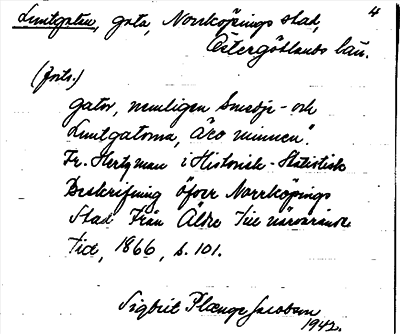 4
Luntgatan, gata, Norrköpings stad,
Östergötlands län.
(forts.)
gator, nemligen Smedje- och
Luntgatorna, äro minnen".
Fr. Hertzman i Historisk-Statistisk
Beskrifning öfver Norrköpings
Stad Från Äldre Till närvarande
Tid, 1866, s. 101.
Sigbrit Plænge Jacobson
1942.